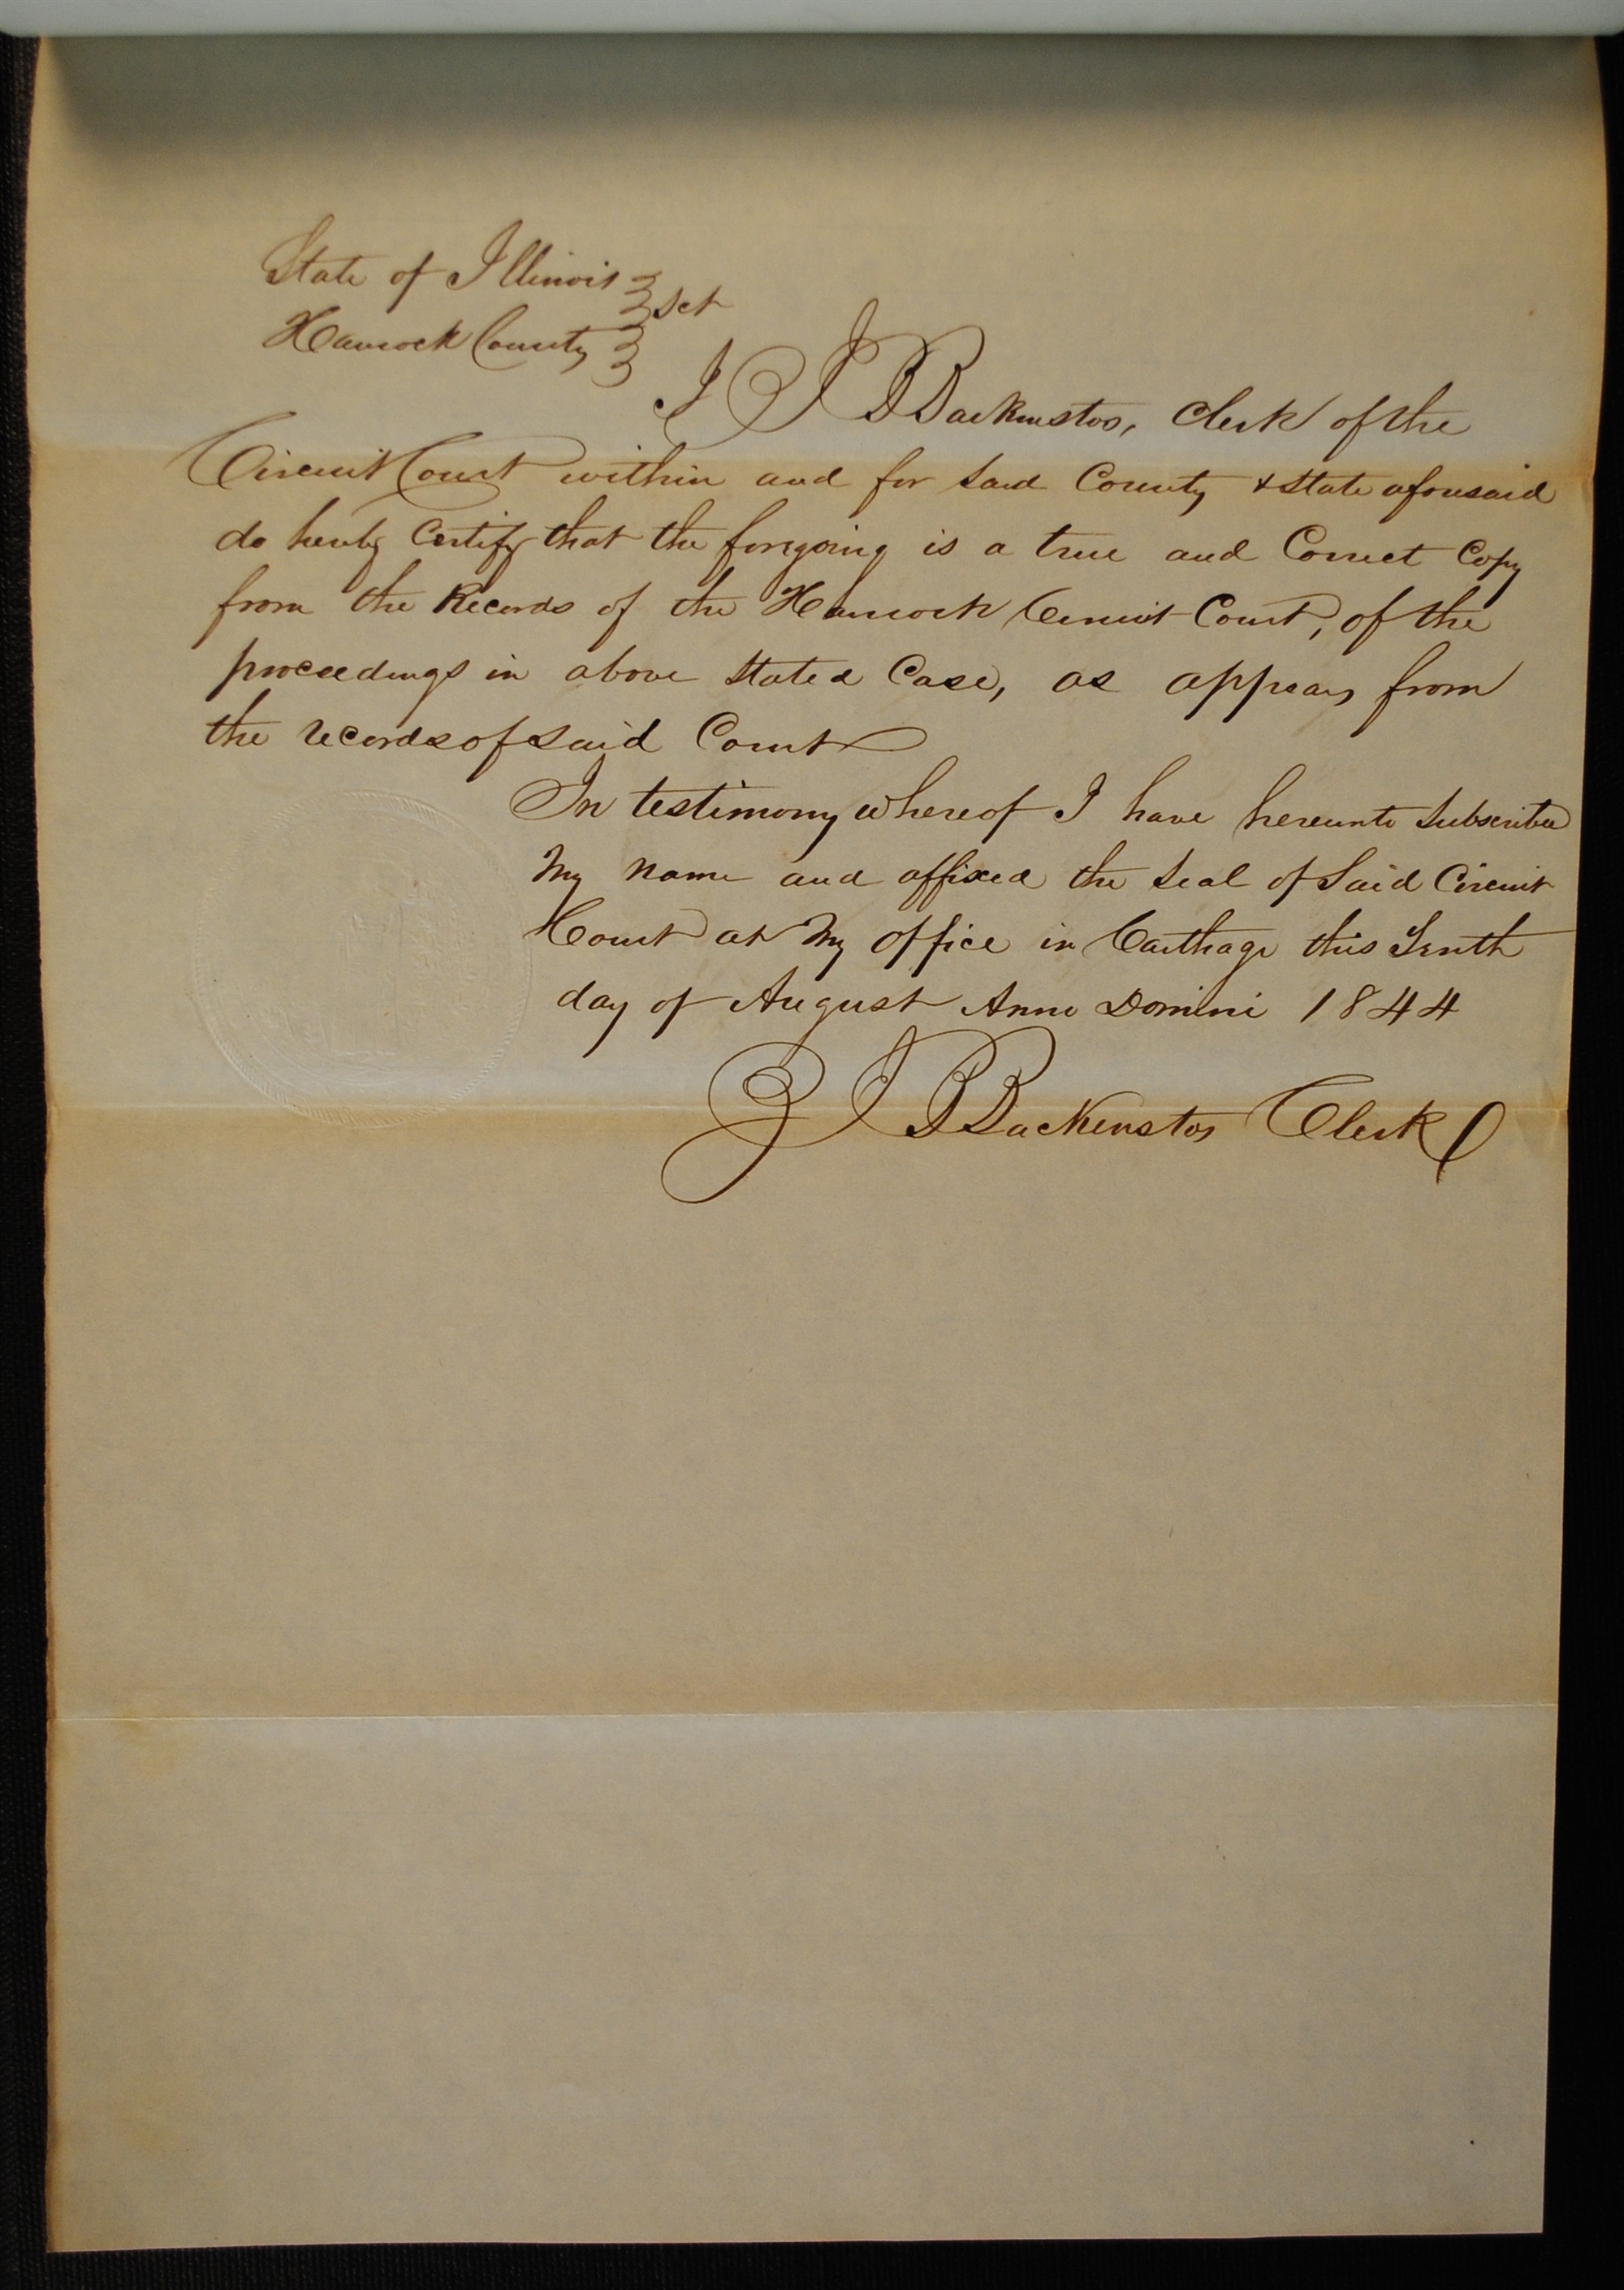 State of Illinois } sct
Hancock County }
I J B Backenstos, Clerk of the
Circuit Court within and for said County & State aforesaid
do hereby Certify that the foregoing is a true and Correct Copy
from the Records of the Hancock Circuit Court, of the
proceedings in above Stated Case, as appears from
the records of said Court
In testimony whereof I have hereunto Subscribed
My name and affixed the Seal of Said Circuit
Court at My office in Carthage this Tenth
day of August Anno Domini 1844
J B Backenstos Clerk